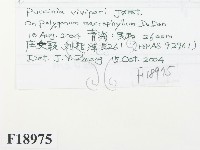 Puccinia vivipari Jørst.
on polygonum macrophyllum D. Don
10 Aug. 2004 青海: 2600m
庄文颖, 8261 (HMAS 92761)
Det. J.Y. Zhuang 15 Oct. 2004
F18975
F18975